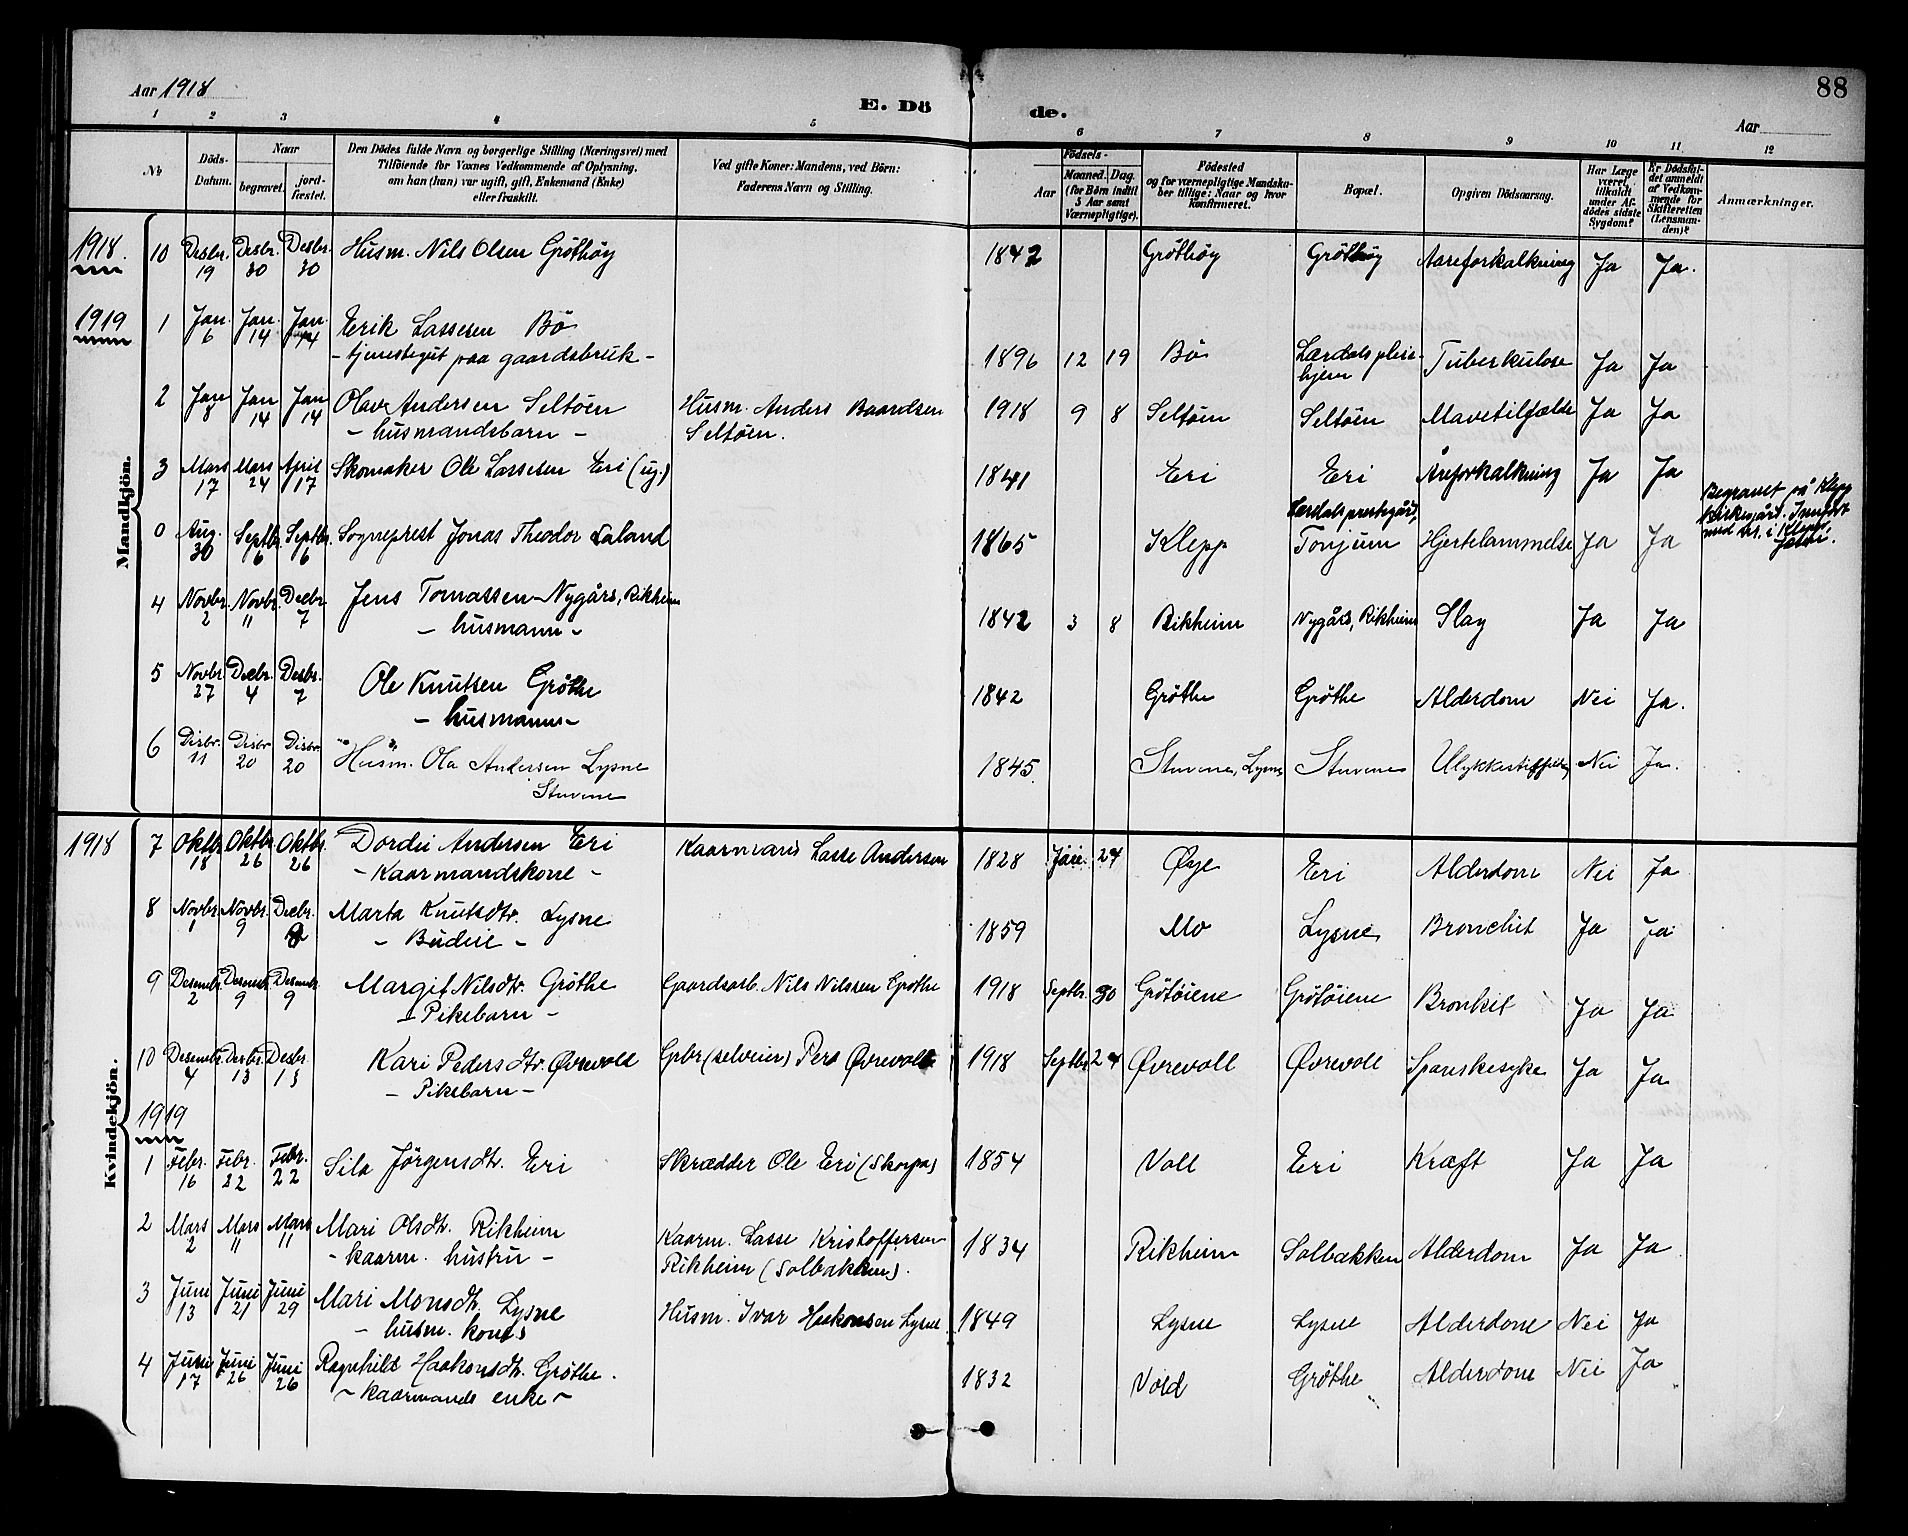 Aar 1918
E. Dö
de.
Aar
88
1 2 3 4 5 6 7 8 9 10 11 12
No
Döds-Datum.
Naar
begravet.
jord-fæstet.
Den Dödes fulde Navn og borgerlige Stilling (Næringsvei) med
Tilföiende for Voxnes Vedkommende af Oplysning,
om han (hun) var ugift, gift, Enkemand (Enke)
eller fraskilt.
Ved gifte Koner: Mandens, ved Börn:
Faderens Navn og Stilling.
Födsels-
Aar
Maaned. Dag.
(for Börn indtil
5 Aar samt
Værnepligtige).
Födested
og for værnepligtige Mandska-
ber tillige: Naar og hvor
Konfirmeret.
Bopæl.
Opgiven Dödsaarsag.
Har Læge
været
tilkaldt
under Af-
dödes sidste
Sygdom?
Er Dödsfal-
det anmeldt
af Vedkom-
mende for
Skifteretten
(Lensman-
den)?
Anmærkninger.
Mandkjön.
1918. 10 Desbr. 19 Desbr. 30 Desbr. 30 Husm. Nils Olsen Gröthöy 1842 Gröthöy Gröthöy Aareforkalkning Ja Ja.
1919 1 Jan. 6 Jan. 14 Jan. 14 Erik Lassesen Bö
- tjenestegut paa gaardsbruk - 1896 12 19 Bö Lærdals pleie-
hjem Tuberkulose Ja Ja
2 Jan 8 Jan 14 Jan 14 Olav Andersen Seltöen
- husmandsbarn - Husm. Anders Baardsen
Seltöen. 1918 9 8 Seltöen Seltöen Mavetilfælde Ja Ja
3 Mars 17 Mars 24 April 17 Skomaker Ole Lassesen Eri (ug.) 1841 Eri Eri Åreforkalkning Ja Ja
0 Aug. 30 Septbr. 6 Septbr. 6 Sogneprest Jonas Theodor Laland 1865 Klepp Lærdals prestegård,
Tonjum Hjertelammelse Ja Ja Begravet på Klepp
kirkegård. Innfört
med nr. i Klepp,
4 Novbr. 2 Novbr. 11 Decbr. 7 Jens Tomassen Nygård, Rikheim
- husmann - 1842 3 8 Rikheim Nygård, Rikheim Slag Ja Ja
5 Novbr. 27 Decbr. 4 Desbr. 7 Ole Knutsen Gröthe
- husmann - 1842 Gröthe Gröthe Alderdom Nei Ja.
6 Disbr. 11 Disbr. 20 Disbr. 20 Husm. Ola Andersen Lysne
Stuvene 1845. Stuvene, Lysne Stuvene Ulykkestilfelde Nei Ja.
Kvindekjön.
1918 7 Oktbr. 18 Oktbr. 26 Oktbr. 26 Dordei Andersen Eri
- Kaarmandskone - Kaarmand Lasse Andersen 1828 24 Øye Eri Alderdom Nei Ja
8 Novbr. 1 Novbr. 9 Decbr. 8 Marta Knutsdtr. Lysne
- Budeie - 1859 Mo Lysne Bronchit Ja Ja
9 Desembr. 2 Desembr. 9 Desembr. 9 Margit Nilsdtr. Gröthe
- Pikebarn - Gaardsarb. Nils Nilssen Gröthe 1918 Septbr. 30 Grötöiene Grötöiene Bronkit Ja Ja
10 Desembr. 4 Desbr. 13 Desbr. 13 Kari Pedersdtr. Øvrevoll
- Pikebarn - Gpbr (selveier) Per Øvrevoll 1918 Septbr. 24 Øvrevoll Øvrevoll Spanskesyke Ja Ja
1919
1 Febr. 16 Febr. 22 Febr. 22 Sila Jörgensdtr. Eri Skrædder Ole Eri (Skorpa) 1854 Voll Eri Kræft Ja Ja
2 Mars 2 Mars 11 Mars 11 Mari Olsdtr. Rikheim
- kaarm. hustru - Kaarm. Lasse Kristoffersen
Rikheim (Solbakken). 1834 Rikheim Solbakken Alderdom Ja Ja
3 Juni 13 Juni 21 Juni 29 Mari Monsdtr. Lysne
- husm. kone Husm. Ivar Haakonsen Lysne 1849 Lysne Lysne Alderdom Nei Ja
4 Juni 17 Juni 26 Juni 26 Ragnhild Haakonsdtr. Gröthe.
- kaarmands enke - 1832 Vold Gröthe Alderdom Nei Ja